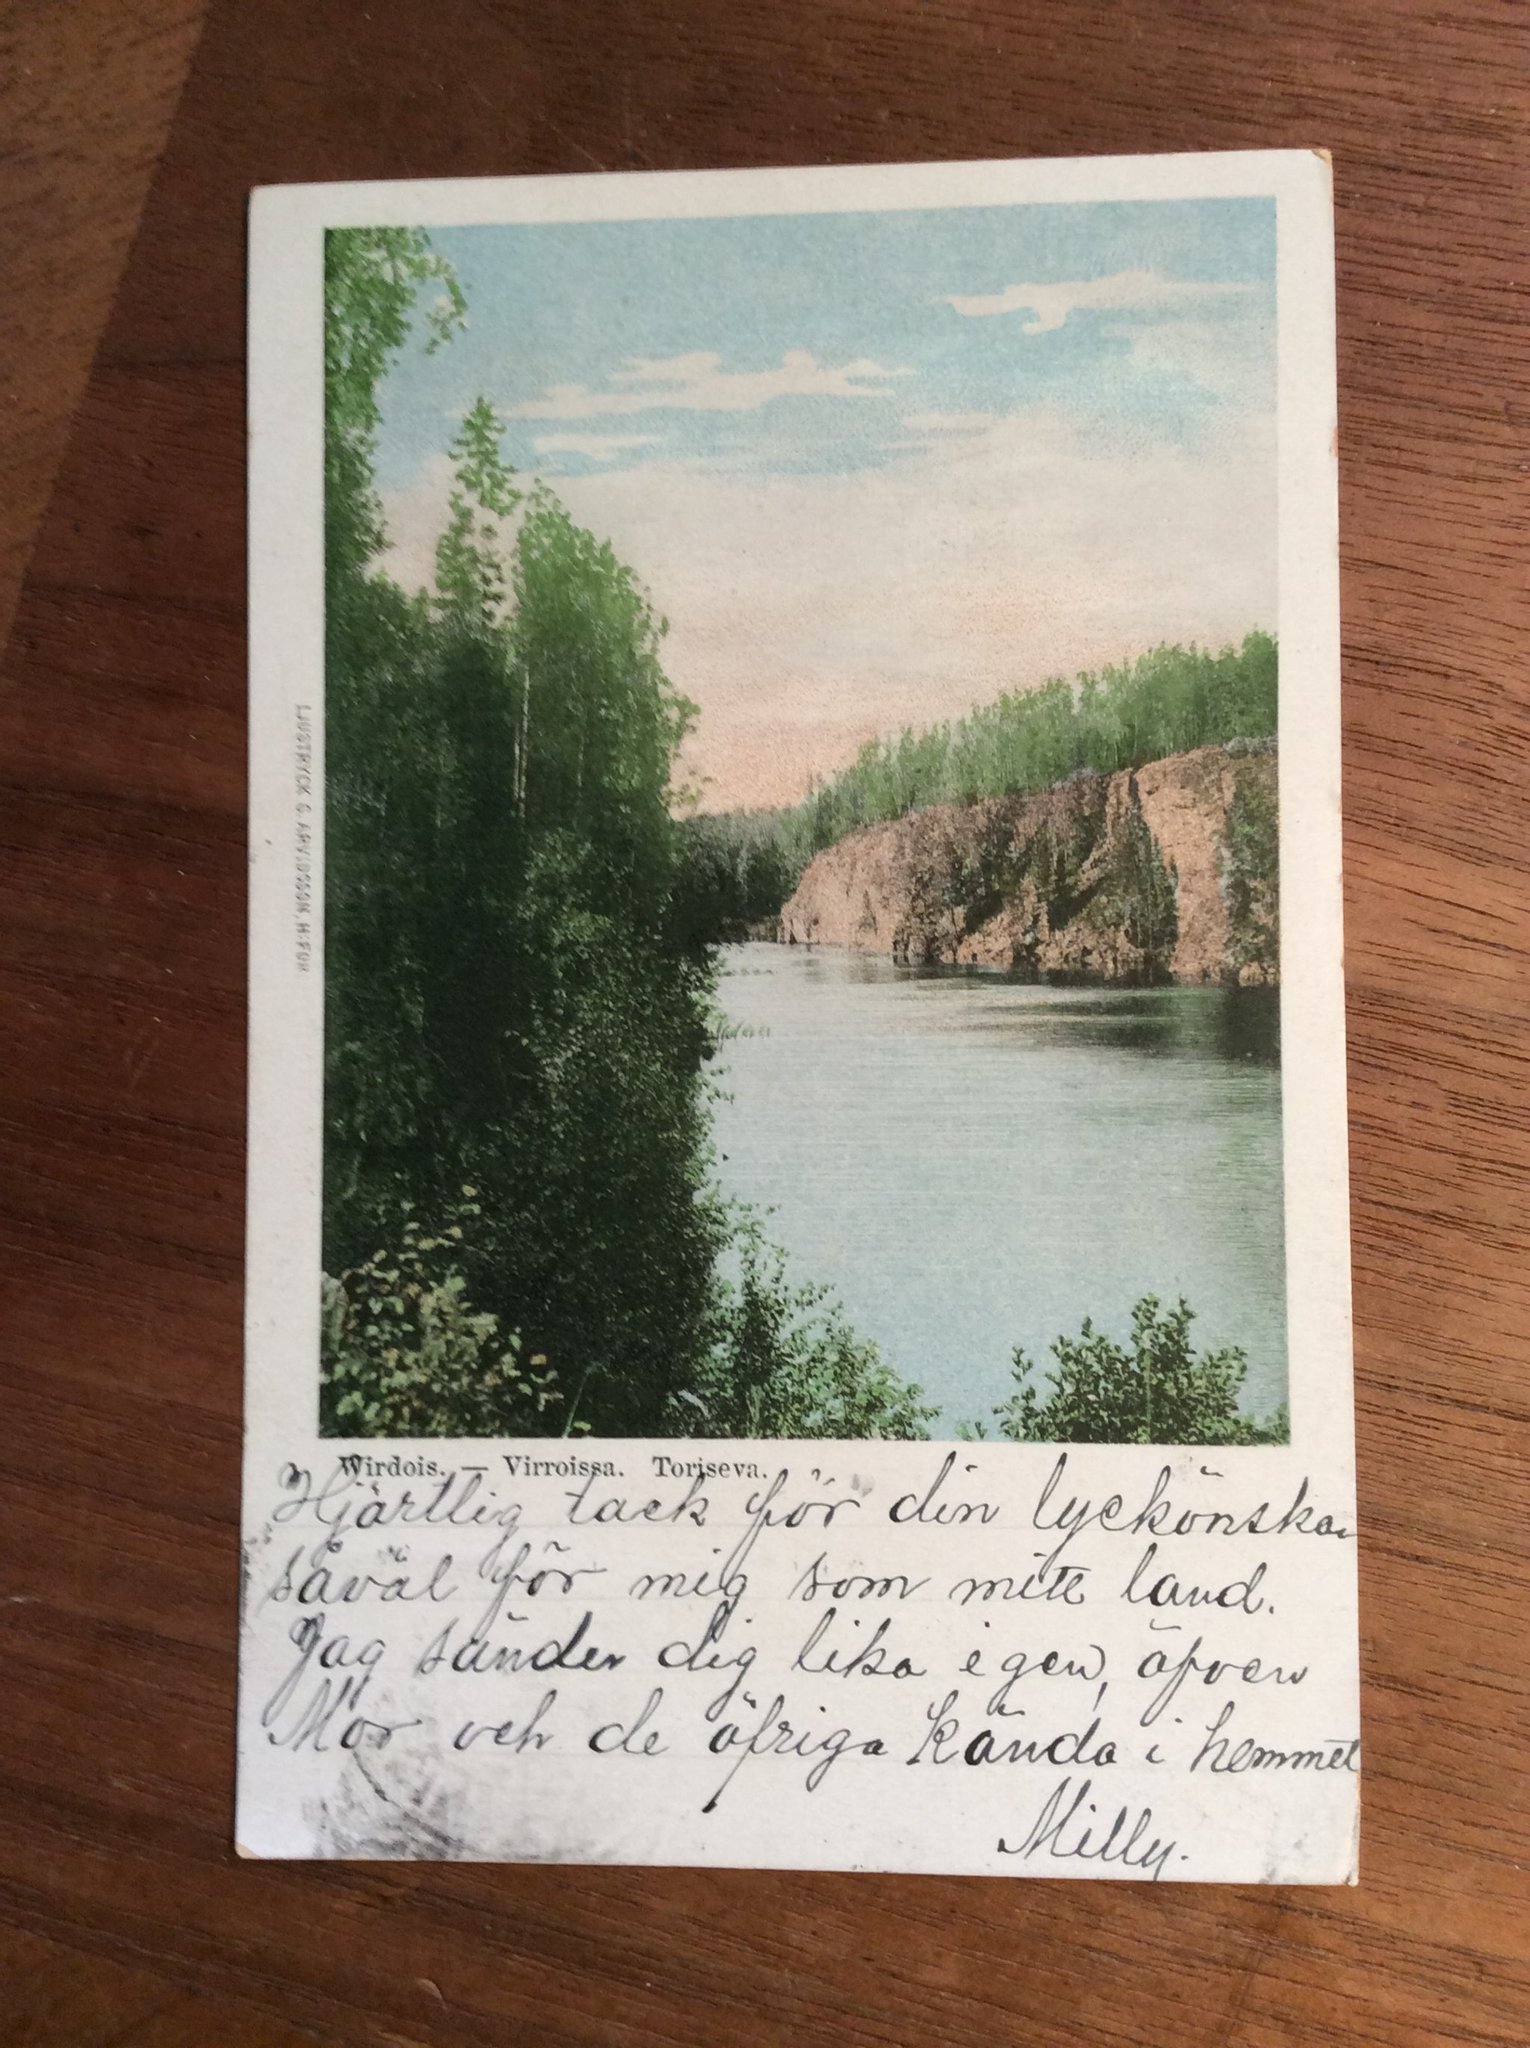 LJUSTRYCK G. ARVIDSSON, H:FOR
Wirdois. — Virroissa. Toriseva.
Hjärtlig tack för din lyckönskan
såväl för mig som mitt land.
Jag sänder dig lika igen, äfven
Mor och de öfriga kända i hemmet
Milly.